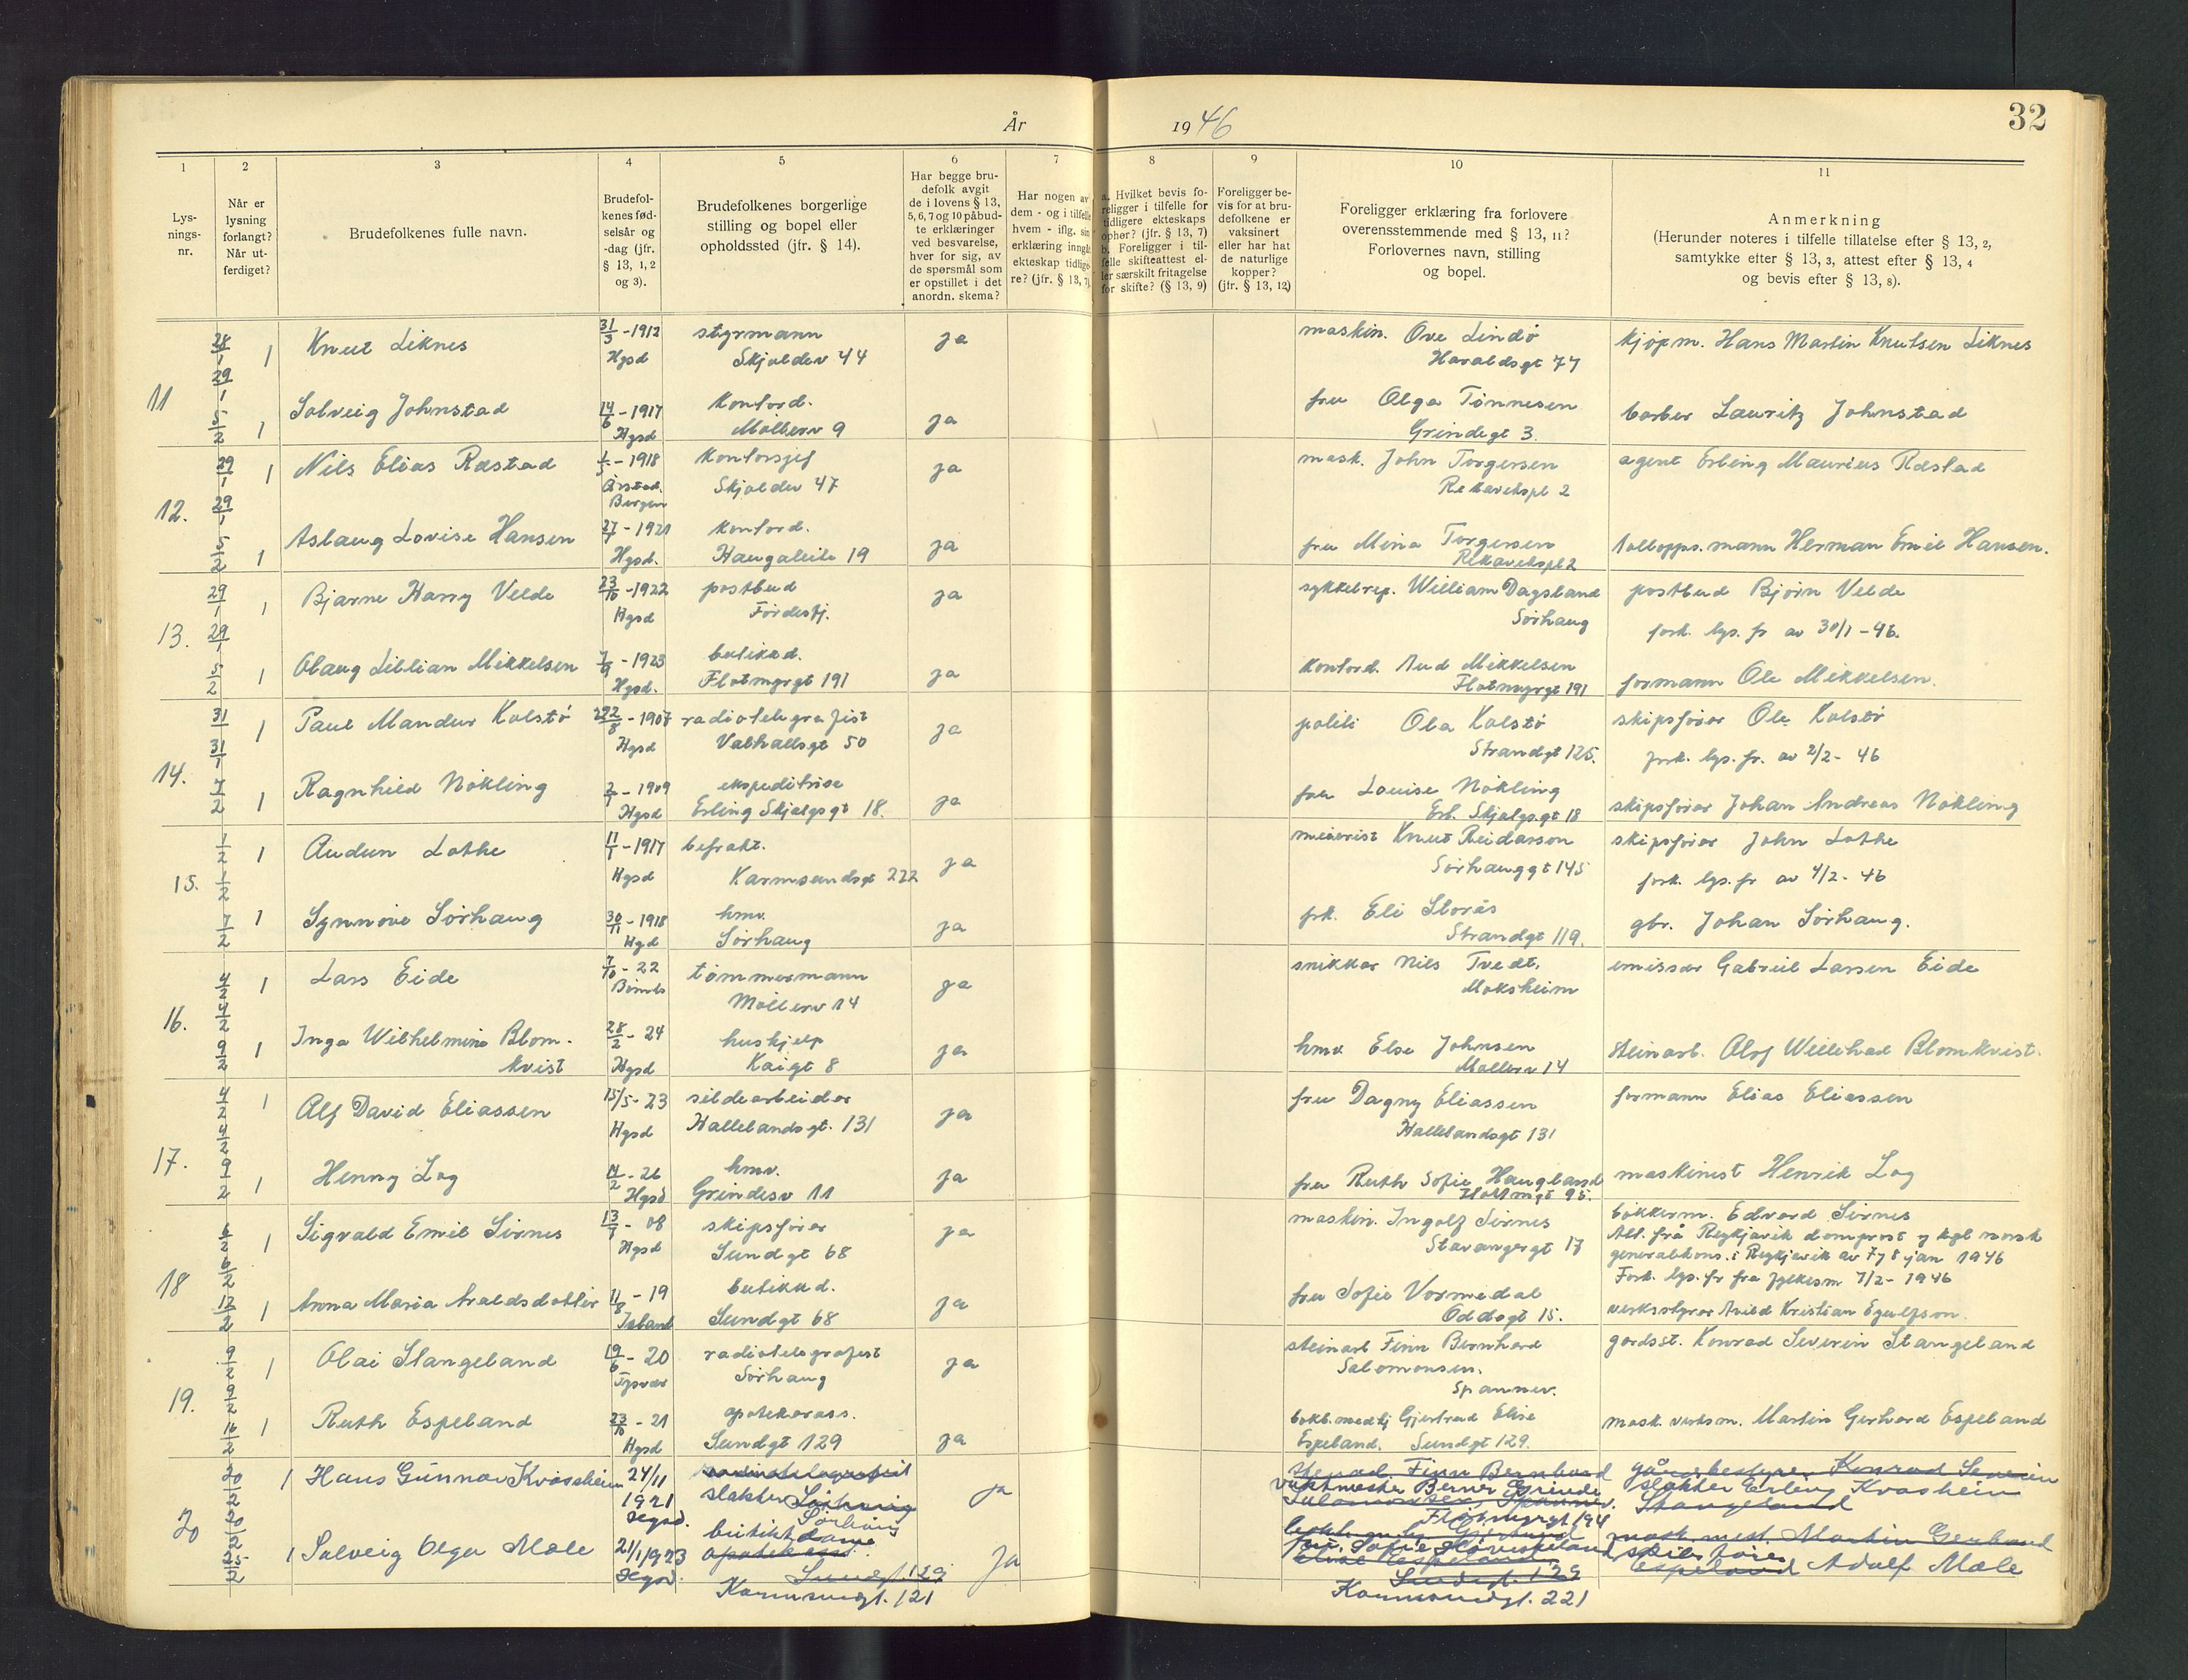 År 1946
32
1
2
3
4
5
6
7
8
9
10
11
Lys-
nings-
nr.
Når er
lysning
forlangt?
Når ut-
ferdiget?
Brudefolkenes fulle navn.
Brudefol-
kenes fød-
selsår og
-dag (jfr.
§ 13, 1, 2
og 3).
Brudefolkenes borgerlige
stilling og bopel eller
opholdssted (jfr. § 14).
Har begge bru-
defolk avgit
de i lovens § 13,
5, 6, 7 og 10 påbud-
te erklæringer
ved besvarelse,
hver for sig, av
de spørsmål som
er opstillet i det
anordn. skema?
Har nogen av
dem - og i tilfelle
hvem - iflg. sin
erklæring inngått
ekteskap tidlige-
re? (jfr. § 13, 7)
a. Hvilket bevis fo-
religger i tilfelle for
tidligere ekteskaps
opher? (jfr. § 13, 7)
b. Foreligger i til-
felle skifteattest el-
ler særskilt fritagelse
for skifte? (§ 13, 9)
Foreligger be-
vis for at bru-
defolkene er
vaksinert
eller har hat
de naturlige
kopper?
(jfr. § 13, 12)
Foreligger erklæring fra forlovere
overensstemmende med § 13, 11?
Forlovernes navn, stilling
og bopel.
Anmerkning
(Herunder noteres i tilfelle tillatelse efter § 13, 2,
samtykke efter § 13, 3, attest efter § 13, 4
og bevis efter § 13, 8).
11
28/1 29/1 5/2
1 Knut Liknes 31/3-1912 Hgsd styrmann Skjoldav 44 ja
maskin. Ove Lindø Haraldsgt 77
kjøpm. Hans Martin Knutsen Liknes
1 Solveig Johnstad 14/6-1917 Hgsd kontord. Møllerv 9 ja
fru Olga Tønnesen Grindegt 3.
barber Lauritz Johnstad
12.
29/1 29/1 5/2
1 Nils EliasRæstad 1918 Årstad. Bergen kontorsjef Skjoldav 47 ja
mask. John Torgersen Rekavikspl 2
agent Erling Maurius Ræstad
1 Aslaug Lovise Hansen 27/7-1921 Hgsd. kontord. Haugaleite 19 ja
fru Mina Torgersen Rekavikspl 2
tollopps.mann Herman Emil Hansen.
13.
29/1 29/1 5/2
1 Bjarne Harry Velde 23/10-1922 Hgsd postbud Førdesfj. ja
sykkelrep. William Dagsland Sørhaug
postbud Bjørn Velde
fork. lys. fr av 30/1-46.
1 Olaug Lillian Mikkelsen 7/9-1923 Hgsd. butikkd. Flotmyrgt 191 ja
kontord. Aud Mikkelsen Flotmyrgt 191
formann Ole Mikkelsen.
14.
31/1 31/1 7/2
1 Paul Mandur Kolstø 22/8-1907 Hgsd radiotelegrafist Valhallsgt 50 ja
politi Ola Kolstø Strandgt 125.
skipsfører Ole Kolstø
fork. lys. fr. av 2/2-46
1 Ragnhild Nøkling 2/7-1909 Hgsd ekspeditrise Erling Skjalgsgt 18. ja
fru Louise Nøkling Erl. Skjalgsgt 18
skipsfører Johan Andreas Nøkling
15.
1/2 1/2 7/2
1 Audun Lothe 11/1-1917 Hgsd befrakt. Karmsundsgt 222 ja
meierist Knut Reidarson Sørhauggt 145
skipsfører John Lothe
fork. lys. fr av 4/2-46
1 Synnøve Sørhaug 30/11-1918 Hgd hmv. Sørhaug ja
frk. Eli Storås Strandgt 119.
gbr. Johan Sørhaug.
16.
4/2 4/2 9/2
1 Lars Eide 7/10-22 Bømlo tømmermann Møllerv 14 ja
snikker Nils Tvedt, Moksheim
emissær Gabriel Larsen Eide
1 Inga Wilhelmine Blom-
kvist 28/2-24 Hgsd huskjelp Kaigt 8 ja
hmv. Else Johnsen Møllerv 14
steinarb. Olof Willehad Blomkvist.
17.
4/2 4/2 9/2
1 Alf David Eliassen 15/5-23 Hgsd sildearbeider Hallelandsgt. 131 ja
fru Dagny Eliassen Hallelandsgt 131
formann Elias Eliassen
1 Henny Log 26 Hgsd hmv. Grindesv 11 ja
fru Ruth Sofie Haugland
maskinist Henrik Log
18
6/2 6/2 12/2
1 Sigvald Emil Sirnes 13/7-08 Hgsd skipsfører Sundgt 68 ja
maskin. Ingolf Sirnes Stavangergt 17
bøkkerm. Edvard Sirnes
Att. frå Reykjavik domprost og kgl norsk
generalkons. i Reykjavik av 7 og 8 jan 1946
Fork. lys. fr fra fylkesm 7/2-1946
1 Anna Maria Araldsdottir 11/8-19 Island butikkd. Sundgt 68 ja
fru Sofie Vormedal Oddagt 15.
19.
9/2 9/2 16/2
1 Olai Stangeland 19/6-20 Tysvær radiotelegrafist Sørhaug ja
steinarb Finn Bernhard
Salomonsen.
Spannev.
gårdsst. Konrad Severin Stangeland
1 Ruth Espeland 23/10-21 Hgsd apotekerass. Sundgt 129 ja
Gjertrud Elise
Espeland. Sundgt 129.
mask. verksm. Martin Gerhard Espeland
20
20/2 20/2 25/2
1 Hans Gunnar Kvasheim 24/11 1921 Hgsd. radiotelegrafist slakter Sørhaug Sørhaug ja
Finn Bernhard
vaktmester Berner Grinde
Salomonsen, Spannev.
Flotmyrgt 194
gårdsbestyrer Konrad Severin
slakter Erling Kvasheim
Stangeland
1 Solveig Olga Mæle 21/1 1923 Hgsd. butikkdame apotekass. Sundgt. 129 Karmsundgt. 121 ja
Elise Espeland
Sundgt. 129
Karmsundgt. 221
mask. mest. Martin Gerhard
skipsfører
Espeland Adolf Mæle